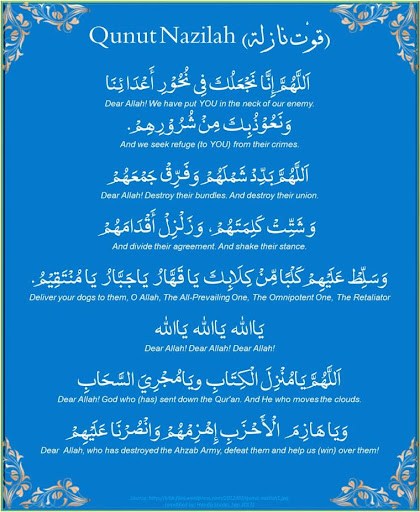 Qunut Nazilah (قنوت نازلة)
اَللّٰهُمَّ إِنَّا نَجْعَلُكَ فِي نُحُوْرِ أَعْدَائِنَا
Dear Allah! We have put YOU in the neck of our enemy.
وَنَعُوْذُبِكَ مِنْ شُرُوْرِهِمْ.
And we seek refuge (to YOU) from their crimes.
اَللّٰهُمَّ بَدِّدْ شَمْلَهُمْ وَفَرِّقْ جَمْعَهُمْ
Dear Allah! Destroy their bundles. And destroy their union.
وَشَتِّتْ كَلِمَتَهُمْ، وَزَلْزِلْ أَقْدَامَهُمْ
And divide their agreement. And shake their stance.
وَسَلِّطْ عَلَيْهِمْ كَلْبًا مِّنْ كِلَابِكَ يَا قَهَّارُ يَاجَبَّارُ يَا مُنْتَقِيْمُ.
Deliver your dogs to them, O Allah, The All-Prevailing One, The Omnipotent One, The Retaliator
يَاالله يَاالله يَاالله
Dear Allah! Dear Allah! Dear Allah!
اَللّٰهُمَّ يَامُنْزِلَ الْكِتَابِ وَيَامُجْرِيَ السَّحَابِ
Dear Allah! God who (has) sent down the Qur'an. And He who moves the clouds.
وَيَاهَازِمَ الْأَحْزَبِ اِهْزِمْهُمْ وَانْصُرْنَا عَلَيْهِمْ
Dear Allah, who has destroyed the Ahzab Army, defeat them and help us (win) over them!